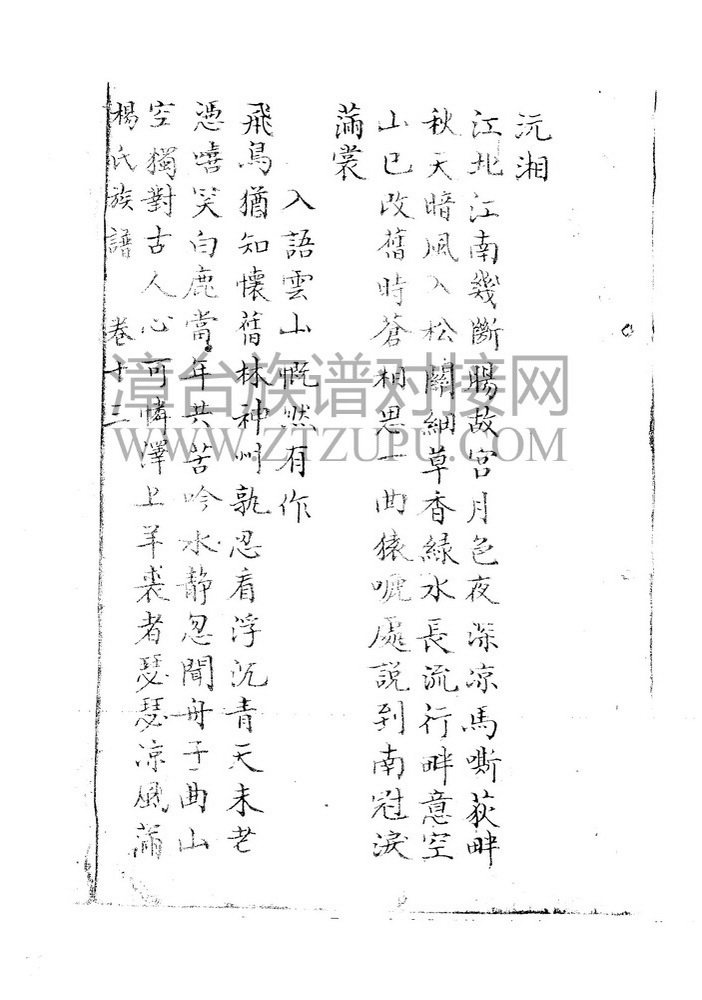 沅湘
江北江南幾斷腸故宮月色夜深凉馬嘶荻畔
秋天暗風入松關細草香緑水長流行畔意空
山已改舊時蒼相思一曲猿啼處説到南冠淚
滿裳
入語雲山慨然有作
飛鳥猶知懷舊林神州孰忍看浮沉青天未老
憑嘻笑白鹿當年共苦吟水静忽聞舟子曲山
空獨對古人心可憐澤上羊裘者瑟瑟凉風滿
楊氏族譜 卷十三
漳台族谱对接网
WWW.ZTZUPU.COM